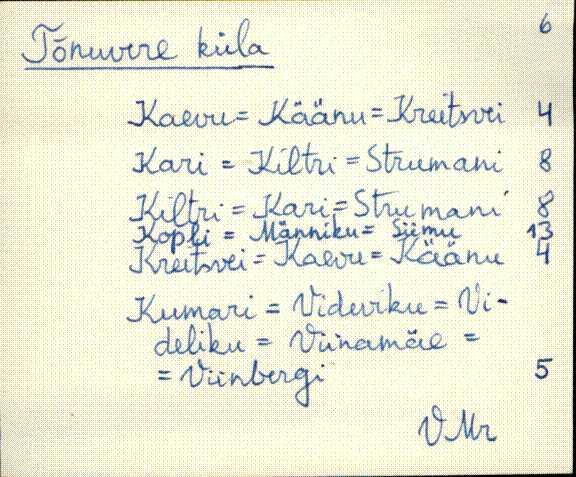 6
Tõnuvere küla
Kaevu = Käänu = Kreitsvei 4
Kari = Kiltri = Strumani 8
Kiltri = Kari = Strumani 8
Kopli = Männiku = Siimu 13
Kreitsvei = Kaevu = Käänu 4
Kumari = Videviku = Vi-
deliku = Viinamäe =
= Viinbergi 5
VMr